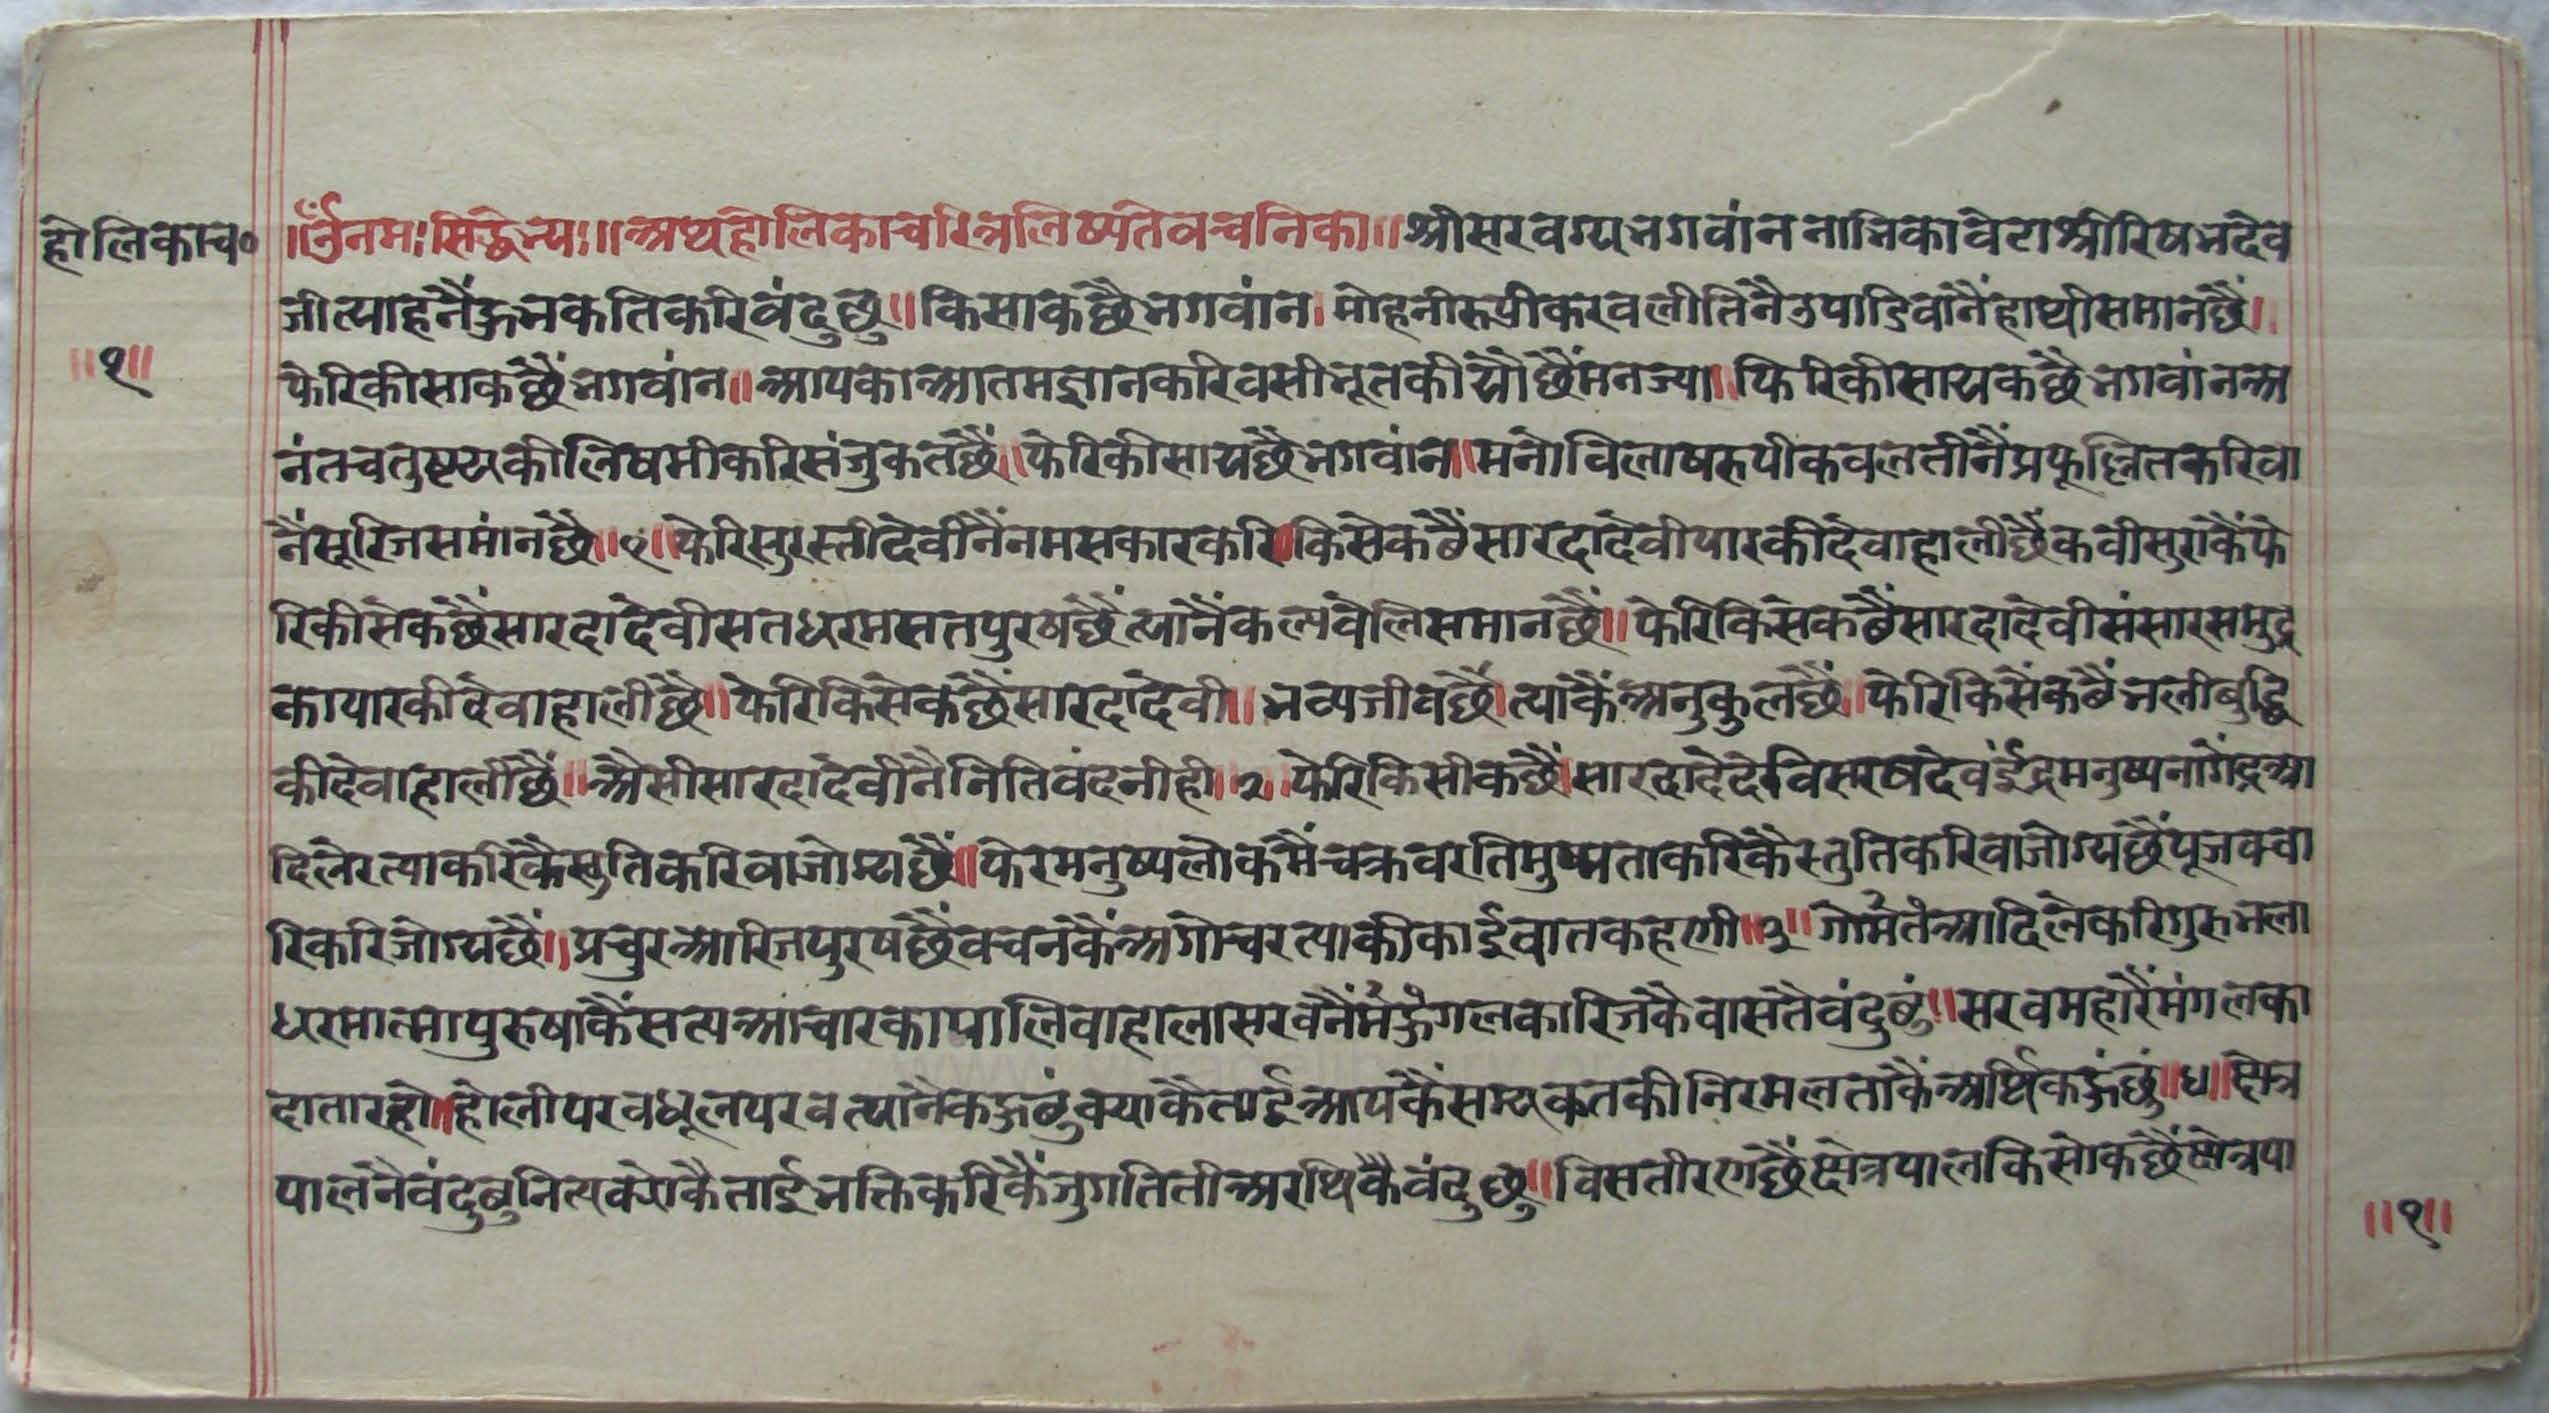 होलिकाच०
॥ॐनमःसिद्धेभ्यः॥अथहोलिकाचरित्रलिष्यतेवचनिका॥श्रीसरवग्यभगवांननाभिकावेटाश्रीरिषभदेव
जीत्याहनैंऊभकतिकरिवंदुछु॥किसाकछैभगवांन।मोहनीरुपीकरवलीतिनैउपाडिवांनैंहाथीसमानछैं।
॥१॥
फेरिकीसाकछैंभगवांन॥आपकाआतमज्ञानकरिवसीभूतकीयौछैंमनज्या॥फिरिकीसायकछैभगवांनअ
नंतचतुष्टयकीलिषमीकरिसंजुकतछैं॥फेरिकीसायछैभगवांन॥मनोविलाषरुपीकवलतीनैंप्रफूल्लितकरिवा
नैंसूरिजसमांनछै॥१॥फेरिसुरस्तीदेवीनैंनमसकारकरि।किसेकछैंसारदादेवीपारकीदेवाहालीछैंकवीसुराकैंफे
रिकीसेकछैंसारदादेवीसतधरमसतपुरषछैंत्यांनैंकल्पवेलिसमानछैं॥फेरिकिसेकछैंसारदादेवीसंसारसमुद्र
कापारकीदेवाहालीछै॥फेरिकिसेकछैंसारदादेवी॥भव्यजीवछैं।त्यांकैंअनुकुलछैं॥फेरिकिसेंकछैंभलीबुद्धि
कीदेवाहालीछैं॥औसीसारदादेवीनैनितिवंदनीही॥२॥फेरिकिसीकछैं।सारदादेदेविसरषदेवइंद्रमनुष्यनागेंद्रआ
दिलेरत्याकरिकैस्तुतिकरिवाजोग्यछैं॥फेरमनुष्यलोकमैंचक्रवरतिमुष्यताकरिकैस्तुतिकरिवाजोग्यछैंपूजक्वा
रिकरिजोग्यछैं॥प्रचुरआरिजपुरषछैंवचनकैंअगोचरत्याकीकाईवातकहणी॥३॥गोमतेआदिलेकरिगुरुभला
धरमात्मापुरुषाकैंसत्यआचारकापालिवाहालासरवनैंमंऊंगलकारिजकैवासतैवंदुछुं॥सरवमहारैंमंगलका
दातारहो॥होलीपरवधूलपरवत्यानैकऊछुंक्याकैताईआपकैंसम्यकतकीनिरमलताकैंअर्थिकऊंछुं॥४॥क्षेत्र
पालनैवंदुछुनित्यक्योकैताईभक्तिकरिकैंजुगतितीअरथिकैवंदुछु॥विसतीरणछैंक्षेत्रपालकिसोकछैंक्षेत्रपा
॥१॥